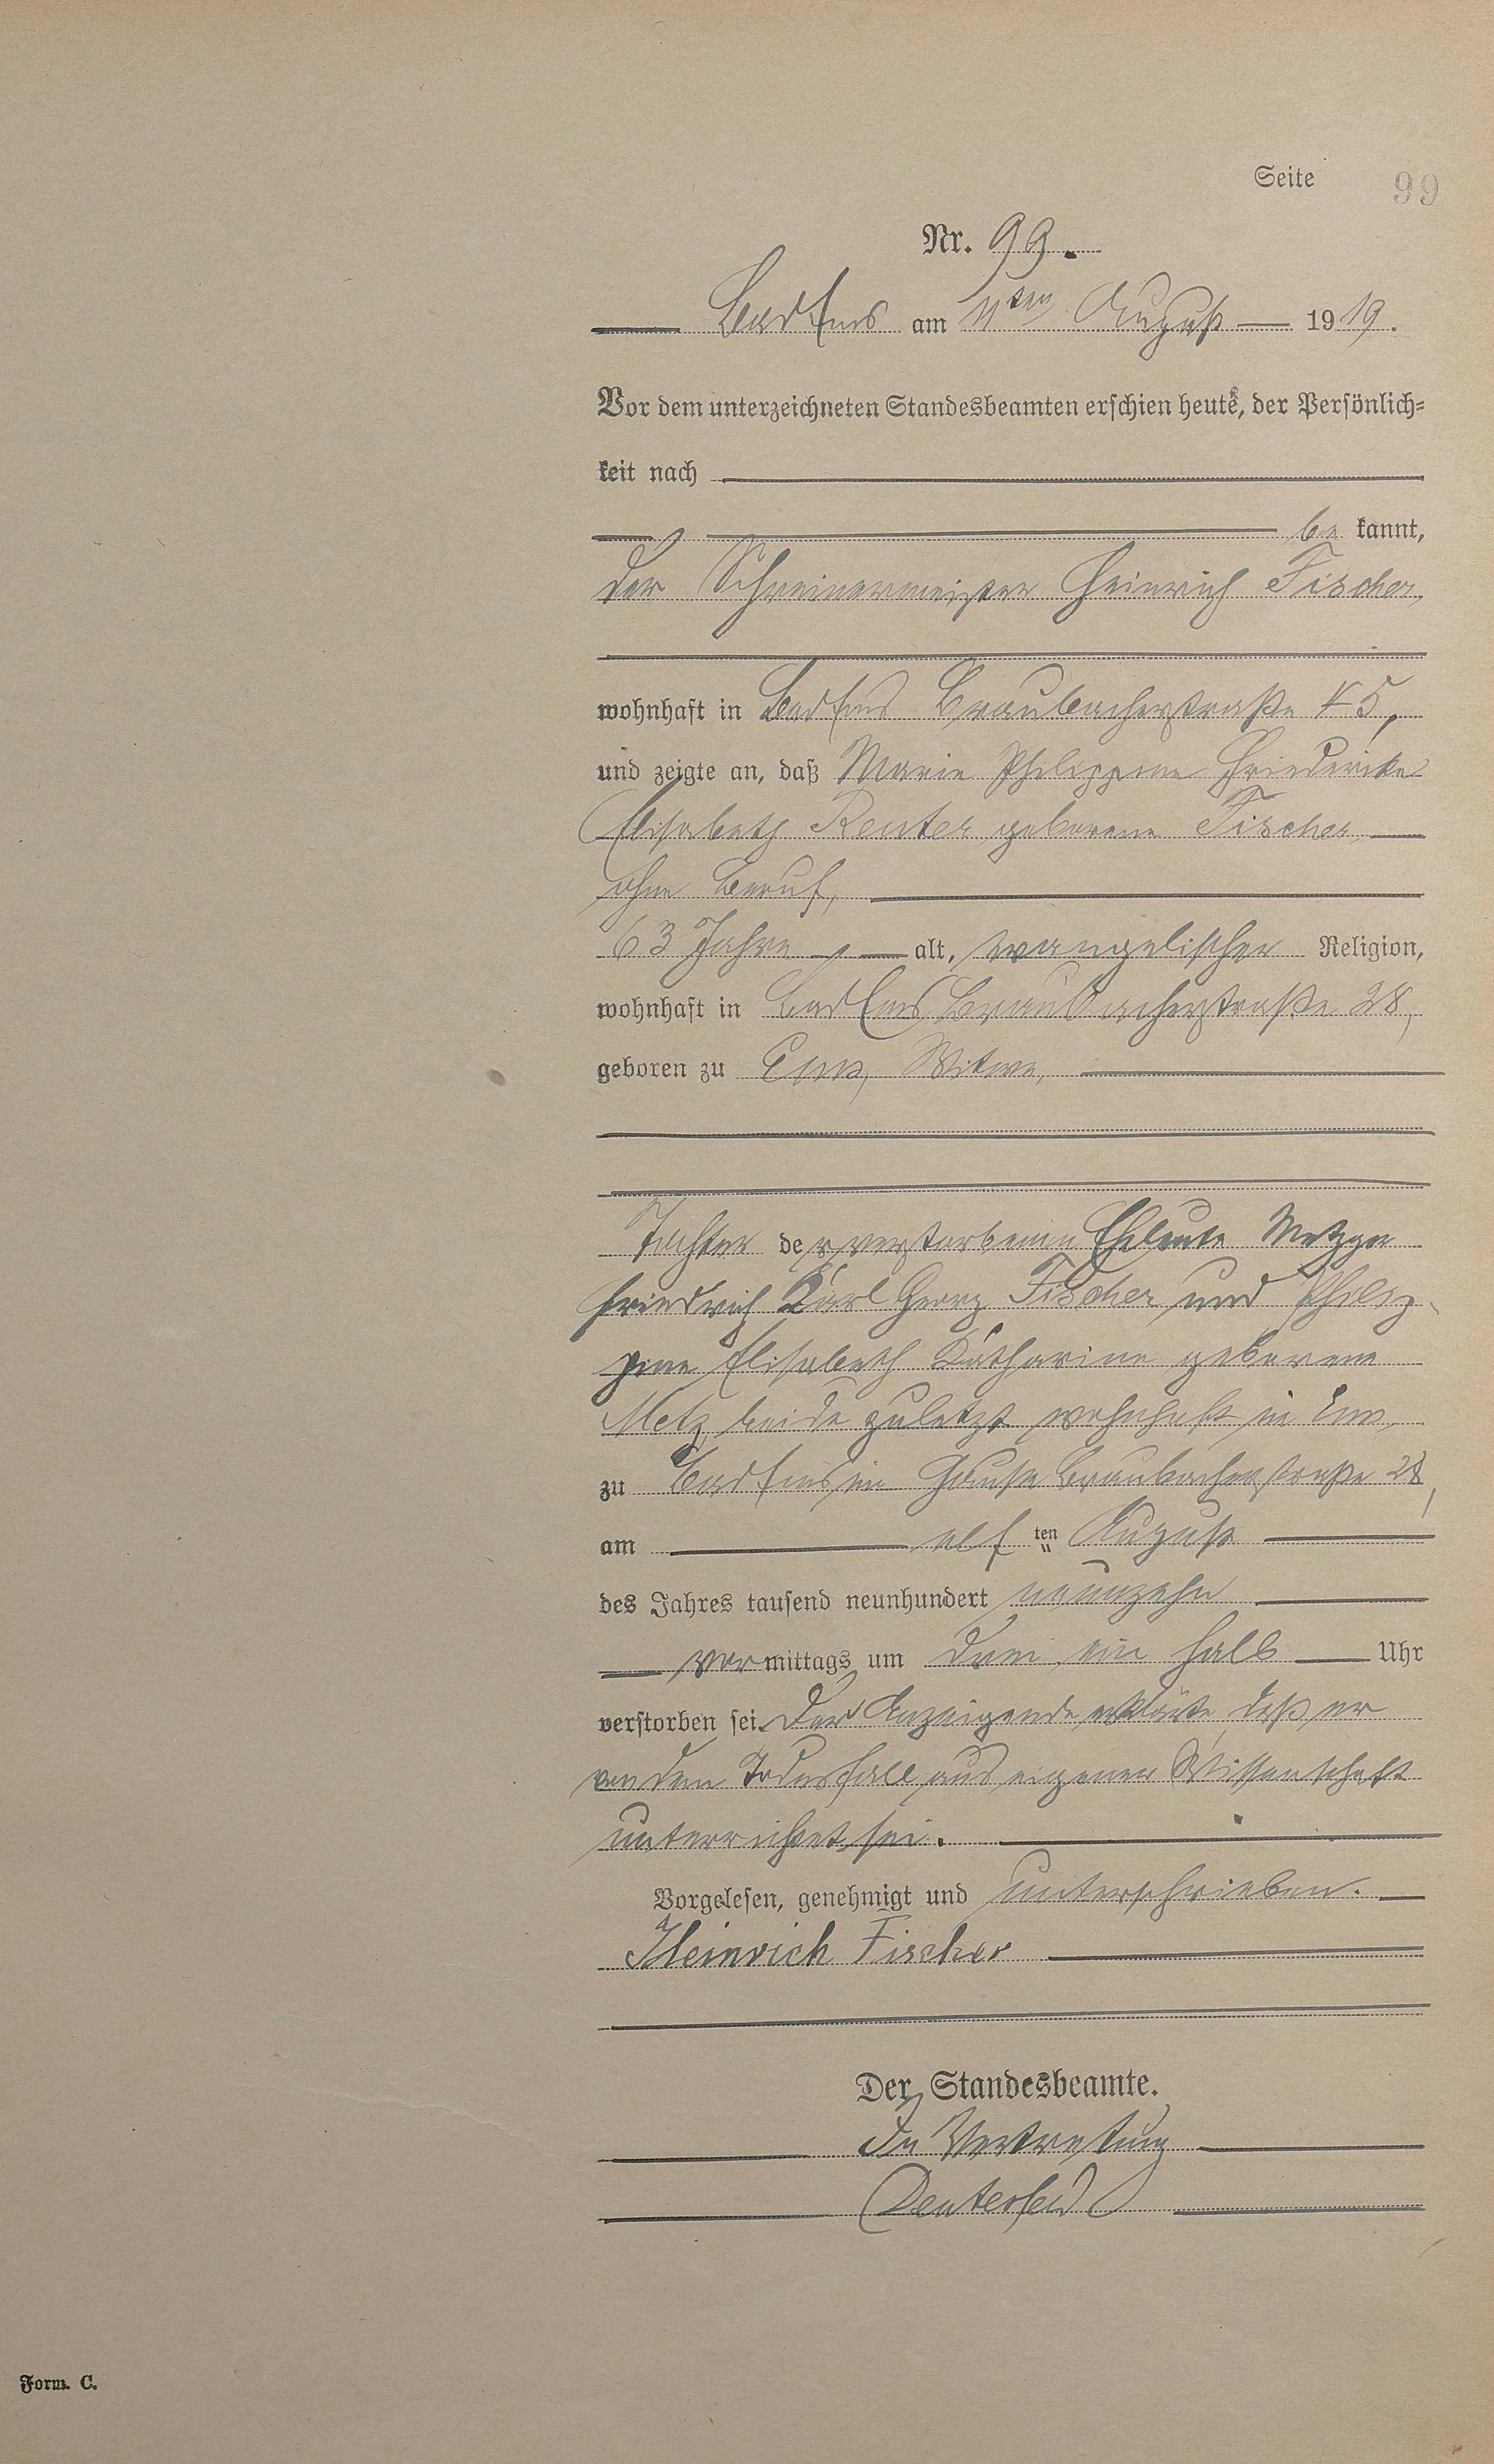 Seite 99
Nr. 99.
Bad Ems am 11ten August 1919.
Vor dem unterzeichneten Standesbeamten erschien heute, der Persönlich-
keit nach
be kannt,
der Schreinermeister Heinrich Fischer,
wohnhaft in Bad Ems Braubacherstraße 45,
und zeigte an, daß Marie Philippine Friederike
Elisabeth Reuter geborene Fischer,
ohne Beruf,
63 Jahre alt, evangelischer Religion,
wohnhaft in Bad Ems Braubacherstraße 28,
geboren zu Ems, Witwe,
Tochter der verstorbenen Eheleute Metzger
Friedrich Karl Georg Fischer und Philip-
pine Elisabeth Katharine geborene
Metz, beide zuletzt wohnhaft in Ems,
zu Bad Ems im Hause Braubacherstraße 28,
am elf ten August
des Jahres tausend neunhundert neunzehn
vor mittags um drei ein halb Uhr
verstorben sei. Der Anzeigende erklärte, daß er
von dem Todesfall aus eigener Wissenschaft
unterrichtet sei.
Vorgelesen, genehmigt und unterschrieben.
Heinrich Fischer
Der Standesbeamte.
In Vertretung
Form. C.